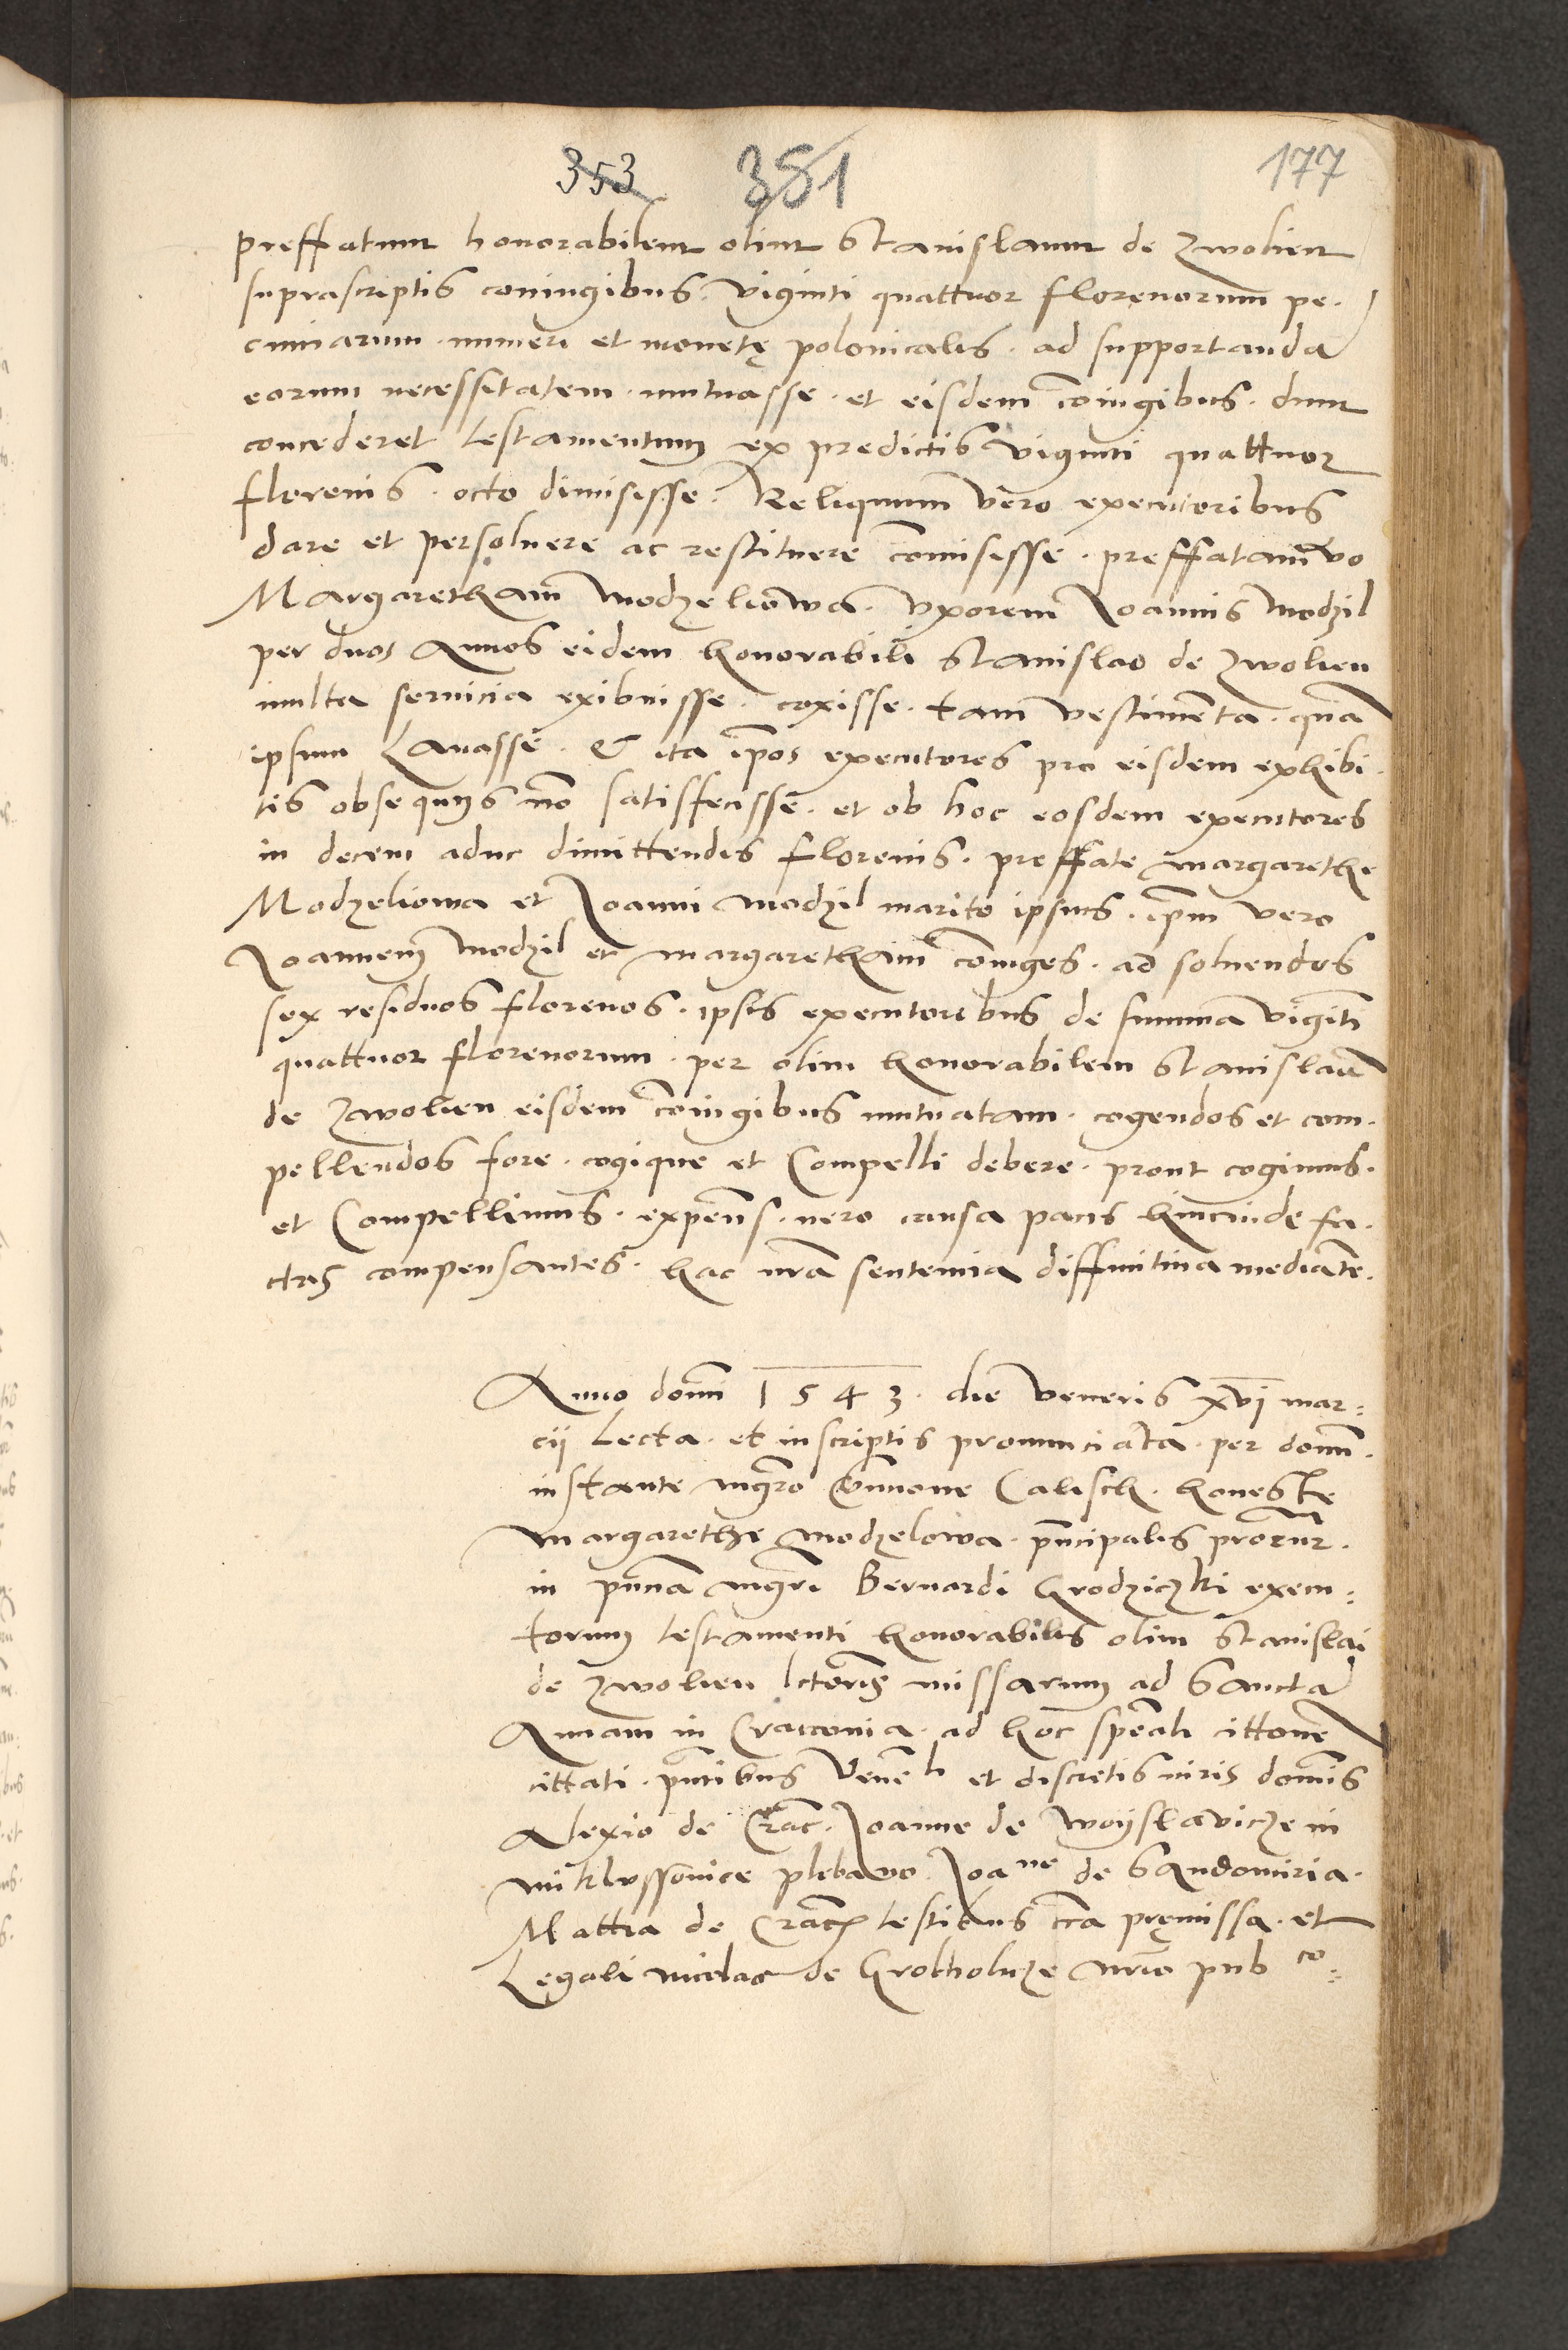 353 351 177
preffatum honorabilem olim Stanislaum de Zwolien
suprascriptis coniugibus. viginti quattuor florenorum pe.
cuniarum. numeri et monetę polonicalis. ad supportanda
eorum necessitatem. mutuasse. et eisdem cōiugibus. dum
concederet testamentum ex predictis viginti quattuor
florenis. octo dimisisse. Reliquum vero executoribus
dare et persoluere ac restituere cōmisisse. preffatam vo
Margaretham Modzeliowa. vxorem Joannis Modzil
per duos Annos eidem honorabili Stanislao de Zwolien
multa seruicia exibuisse. coxisse. tam vestimēta. quā
ipsum Lauasse. & ita ip̄os executores pro eisdem exhibi.
tis obsequijs nō satisfecisse. et ob hoc eosdem executores
in decem aduc dimittendis florenis. preffate Margarethe
Modzeliowa et Joanni Modzil marito ipsius. ip̄m vero
Joannem Modzil et Margaretham cōiuges. ad soluendos
sex residuos florenos. ipsis executoribus de summa vigīti
quattuor florenorum. per olim honorabilem Stanislaū
de Zwolien eisdem cōiugibus mutuatam. cogendos et com.
pellendos fore. cogique et Compelli debere. prout cogimus.
et Compellimus. expens. vero causa pacis hincinde fa.
ctas compensantes. hac nr̄a sentencia diffinitiua mediāte.
Anno domī 1543. die Veneris xvj mar:
cij Lecta. et in scriptis pronunciata. per domī.
instante mgr̄o Calisch. honeste
Margarethe Modzelowa. prīcipalis procur̄.
in pn̄cia mgr̄i Bernardi Grodziczki execu:
torum testamenti honorabilis olim Stanislai
de Zwolien lctoris missarum ad Sanctā
Annam in Craccouia. ad hoc spēali cittone
cittati. pn̄tibus Venēli et discretis viris domīs
Alexio de Crac. Joanne de Woyslavicze in
Miklussouice plebano. Joane de Sandomiria.
Mattia de Crac testibus cīra pręmissa. et
Legali Nicolao de Grotholicze nr̄io pubco: